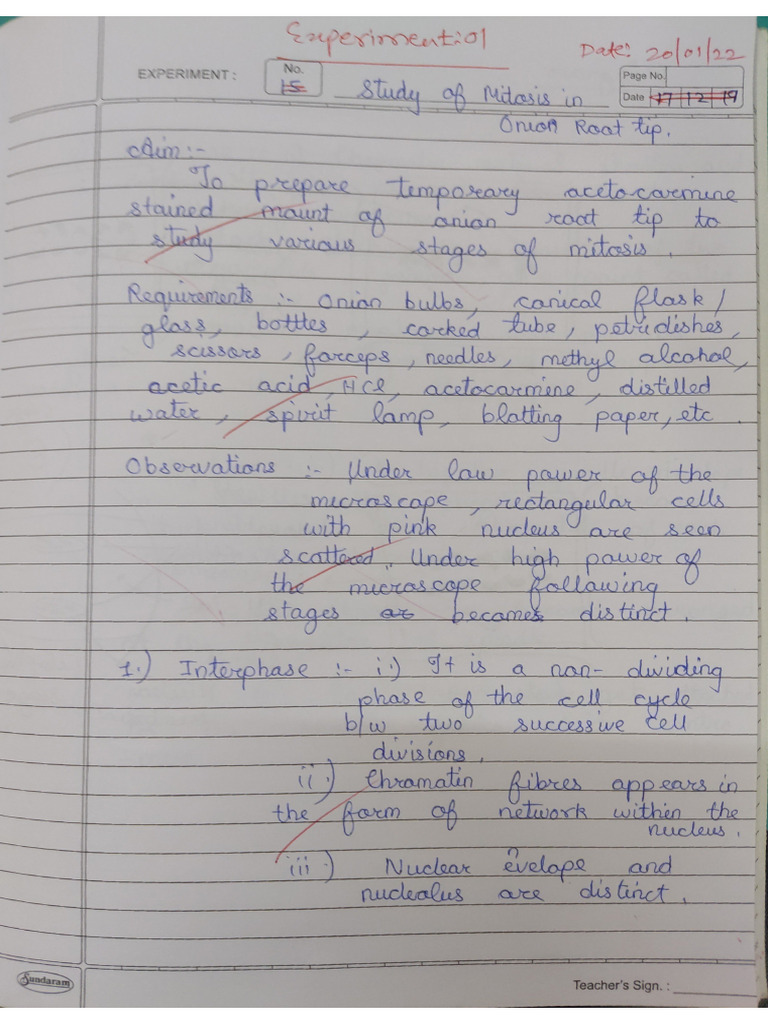 Experiment:01
Date: 20/01/22
EXPERIMENT : No. 15 Study of Mitosis in
Page No.
Date 17 12 19
Onion Root tip.
Aim :-
To prepare temporary acetocarmine
stained mount of onion root tip to
study various stages of mitosis .
Requirements :- Onion bulbs, conical flask /
glass, botttes , corked tube, petridishes,
scissors , forceps, needles, methyl alcohol,
acetic acid , HCl, acetocarmine, distilled
water, spirit lamp, blotting paper, etc .
Observations :- Under low power of the
microscope , rectangular cells
with pink nucleus are seen
scattered. Under high power of
the microscope following
stages ar becomes distinct .
1.) Interphase :- i.) It is a non- dividing
phase of the cell cycle
b/w two successive cell
divisions.
ii.) Chromatin fibres appears in
the form of network within the
nucleus.
iii.) Nuclear envelope and
nucleolus are distinct .
Sundaram
Teacher's Sign. :